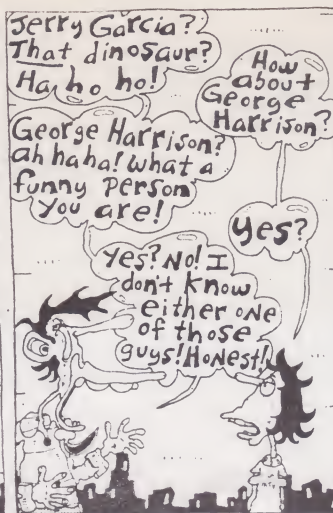 Jerry Garcia?
That dinosaur?
Ha ho ho!
How
about
George
Harrison?
George Harrison?
ah haha! What a
funny person
you are!
Yes?
Yes? No! I
don't know
either one
of those
guys! Honest!